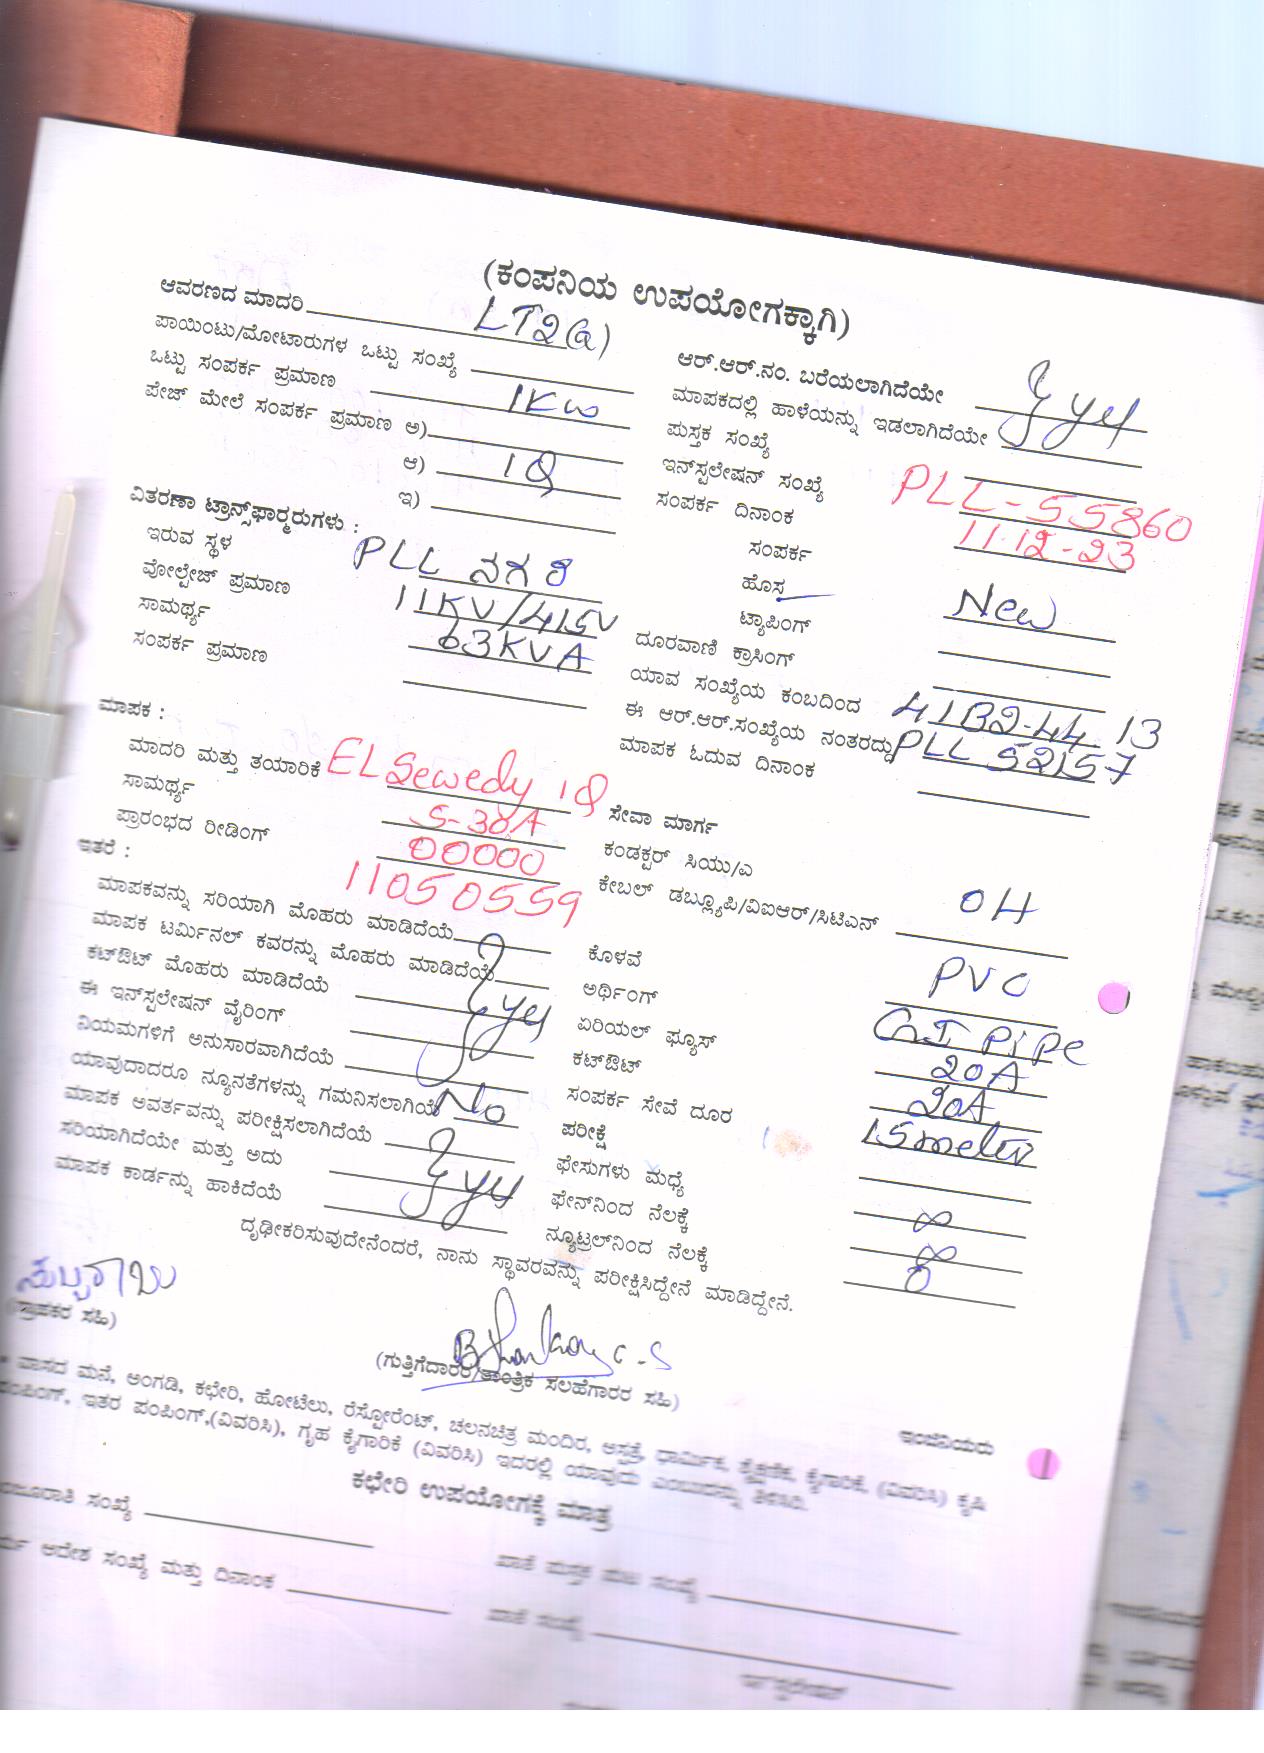 (ಕಂಪನಿಯ ಉಪಯೋಗಕ್ಕಾಗಿ)
ಆವರಣದ ಮಾದರಿ LT2(a)
ಪಾಯಿಂಟು/ಮೋಟಾರುಗಳ ಒಟ್ಟು ಸಂಖ್ಯೆ
ಒಟ್ಟು ಸಂಪರ್ಕ ಪ್ರಮಾಣ 1Kw
ಪೇಜ್ ಮೇಲೆ ಸಂಪರ್ಕ ಪ್ರಮಾಣ ಅ)
ಆ)
ಇ)
ವಿತರಣಾ ಟ್ರಾನ್ಸ್‌ಫಾರ್ಮರುಗಳು :
ಇರುವ ಸ್ಥಳ PLL ನಗರಿ
ವೋಲ್ಟೇಜ್ ಪ್ರಮಾಣ 11KV/415V
ಸಾಮರ್ಥ್ಯ 63KVA
ಸಂಪರ್ಕ ಪ್ರಮಾಣ
ಮಾಪಕ :
ಮಾದರಿ ಮತ್ತು ತಯಾರಿಕೆ EL Sewedy
ಸಾಮರ್ಥ್ಯ 5-30A
ಪ್ರಾರಂಭದ ರೀಡಿಂಗ್ 00000
11050559
ಇತರೆ :
ಮಾಪಕವನ್ನು ಸರಿಯಾಗಿ ಮೊಹರು ಮಾಡಿದೆಯೆ
ಮಾಪಕ ಟರ್ಮಿನಲ್ ಕವರನ್ನು ಮೊಹರು ಮಾಡಿದೆಯೆ
ಕಟ್‌ಔಟ್ ಮೊಹರು ಮಾಡಿದೆಯೆ
ಈ ಇನ್‌ಸ್ಟಲೇಷನ್ ವೈರಿಂಗ್
ನಿಯಮಗಳಿಗೆ ಅನುಸಾರವಾಗಿದೆಯೆ
ಯಾವುದಾದರೂ ನ್ಯೂನತೆಗಳನ್ನು ಗಮನಿಸಲಾಗಿಯೆ No
ಮಾಪಕ ಅವರ್ತವನ್ನು ಪರೀಕ್ಷಿಸಲಾಗಿದೆಯೆ
ಸರಿಯಾಗಿದೆಯೇ ಮತ್ತು ಅದು
ಮಾಪಕ ಕಾರ್ಡನ್ನು ಹಾಕಿದೆಯೆ
ಆರ್.ಆರ್.ನಂ. ಬರೆಯಲಾಗಿದೆಯೇ
ಮಾಪಕದಲ್ಲಿ ಹಾಳೆಯನ್ನು ಇಡಲಾಗಿದೆಯೇ
ಪುಸ್ತಕ ಸಂಖ್ಯೆ
ಇನ್‌ಸ್ಟಲೇಷನ್ ಸಂಖ್ಯೆ PLL-55860
ಸಂಪರ್ಕ ದಿನಾಂಕ 11-12-23
ಸಂಪರ್ಕ
ಹೊಸ New
ಟ್ಯಾಪಿಂಗ್
ದೂರವಾಣಿ ಕ್ರಾಸಿಂಗ್
ಯಾವ ಸಂಖ್ಯೆಯ ಕಂಬದಿಂದ
ಈ ಆರ್.ಆರ್.ಸಂಖ್ಯೆಯ ನಂತರದ್ದು PLL 52157
ಮಾಪಕ ಓದುವ ದಿನಾಂಕ
ಸೇವಾ ಮಾರ್ಗ
ಕಂಡಕ್ಟರ್ ಸಿಯು/ಎ
ಕೇಬಲ್ ಡಬ್ಲ್ಯೂಪಿ/ವಿಐಆರ್/ಸಿಟಿಎಸ್ OH
ಕೊಳವೆ PVC
ಅರ್ಥಿಂಗ್ GI PIPE
ಏರಿಯಲ್ ಫ್ಯೂಸ್ 20A
ಕಟ್‌ಔಟ್ 20A
ಸಂಪರ್ಕ ಸೇವೆ ದೂರ 15meter
ಪರೀಕ್ಷೆ
ಫೇಸುಗಳು ಮಧ್ಯೆ
ಫೇಸ್‌ನಿಂದ ನೆಲಕ್ಕೆ ∞
ನ್ಯೂಟ್ರಲ್‌ನಿಂದ ನೆಲಕ್ಕೆ ∞
0
ದೃಢೀಕರಿಸುವುದೇನೆಂದರೆ, ನಾನು ಸ್ಥಾವರವನ್ನು ಪರೀಕ್ಷಿಸಿದ್ದೇನೆ ಮಾಡಿದ್ದೇನೆ.
(ಗ್ರಾಹಕರ ಸಹಿ)
(ಗುತ್ತಿಗೆದಾರರ/ತಾಂತ್ರಿಕ ಸಲಹೆಗಾರರ ಸಹಿ)
ಇಂಜಿನಿಯರು
* ವಾಸದ ಮನೆ, ಅಂಗಡಿ, ಕಛೇರಿ, ಹೋಟೆಲು, ರೆಸ್ಟೋರೆಂಟ್, ಚಲನಚಿತ್ರ ಮಂದಿರ, ಆಸ್ಪತ್ರೆ, ಧಾರ್ಮಿಕ, ಶೈಕ್ಷಣಿಕ, ಕೈಗಾರಿಕೆ, (ವಿವರಿಸಿ) ಕೃಷಿ
ಪಂಪಿಂಗ್, ಇತರ ಪಂಪಿಂಗ್,(ವಿವರಿಸಿ), ಗೃಹ ಕೈಗಾರಿಕೆ (ವಿವರಿಸಿ) ಇದರಲ್ಲಿ ಯಾವುದು ಎಂಬುದನ್ನು ತಿಳಿಸಿರಿ.
ಕಛೇರಿ ಉಪಯೋಗಕ್ಕೆ ಮಾತ್ರ
ಸಂಖ್ಯೆ
ಆದೇಶ ಸಂಖ್ಯೆ ಮತ್ತು ದಿನಾಂಕ
ಖಾತೆ ಪುಸ್ತಕ ಪುಟ ಸಂಖ್ಯೆ
ಖಾತೆ ಸಂಖ್ಯೆ